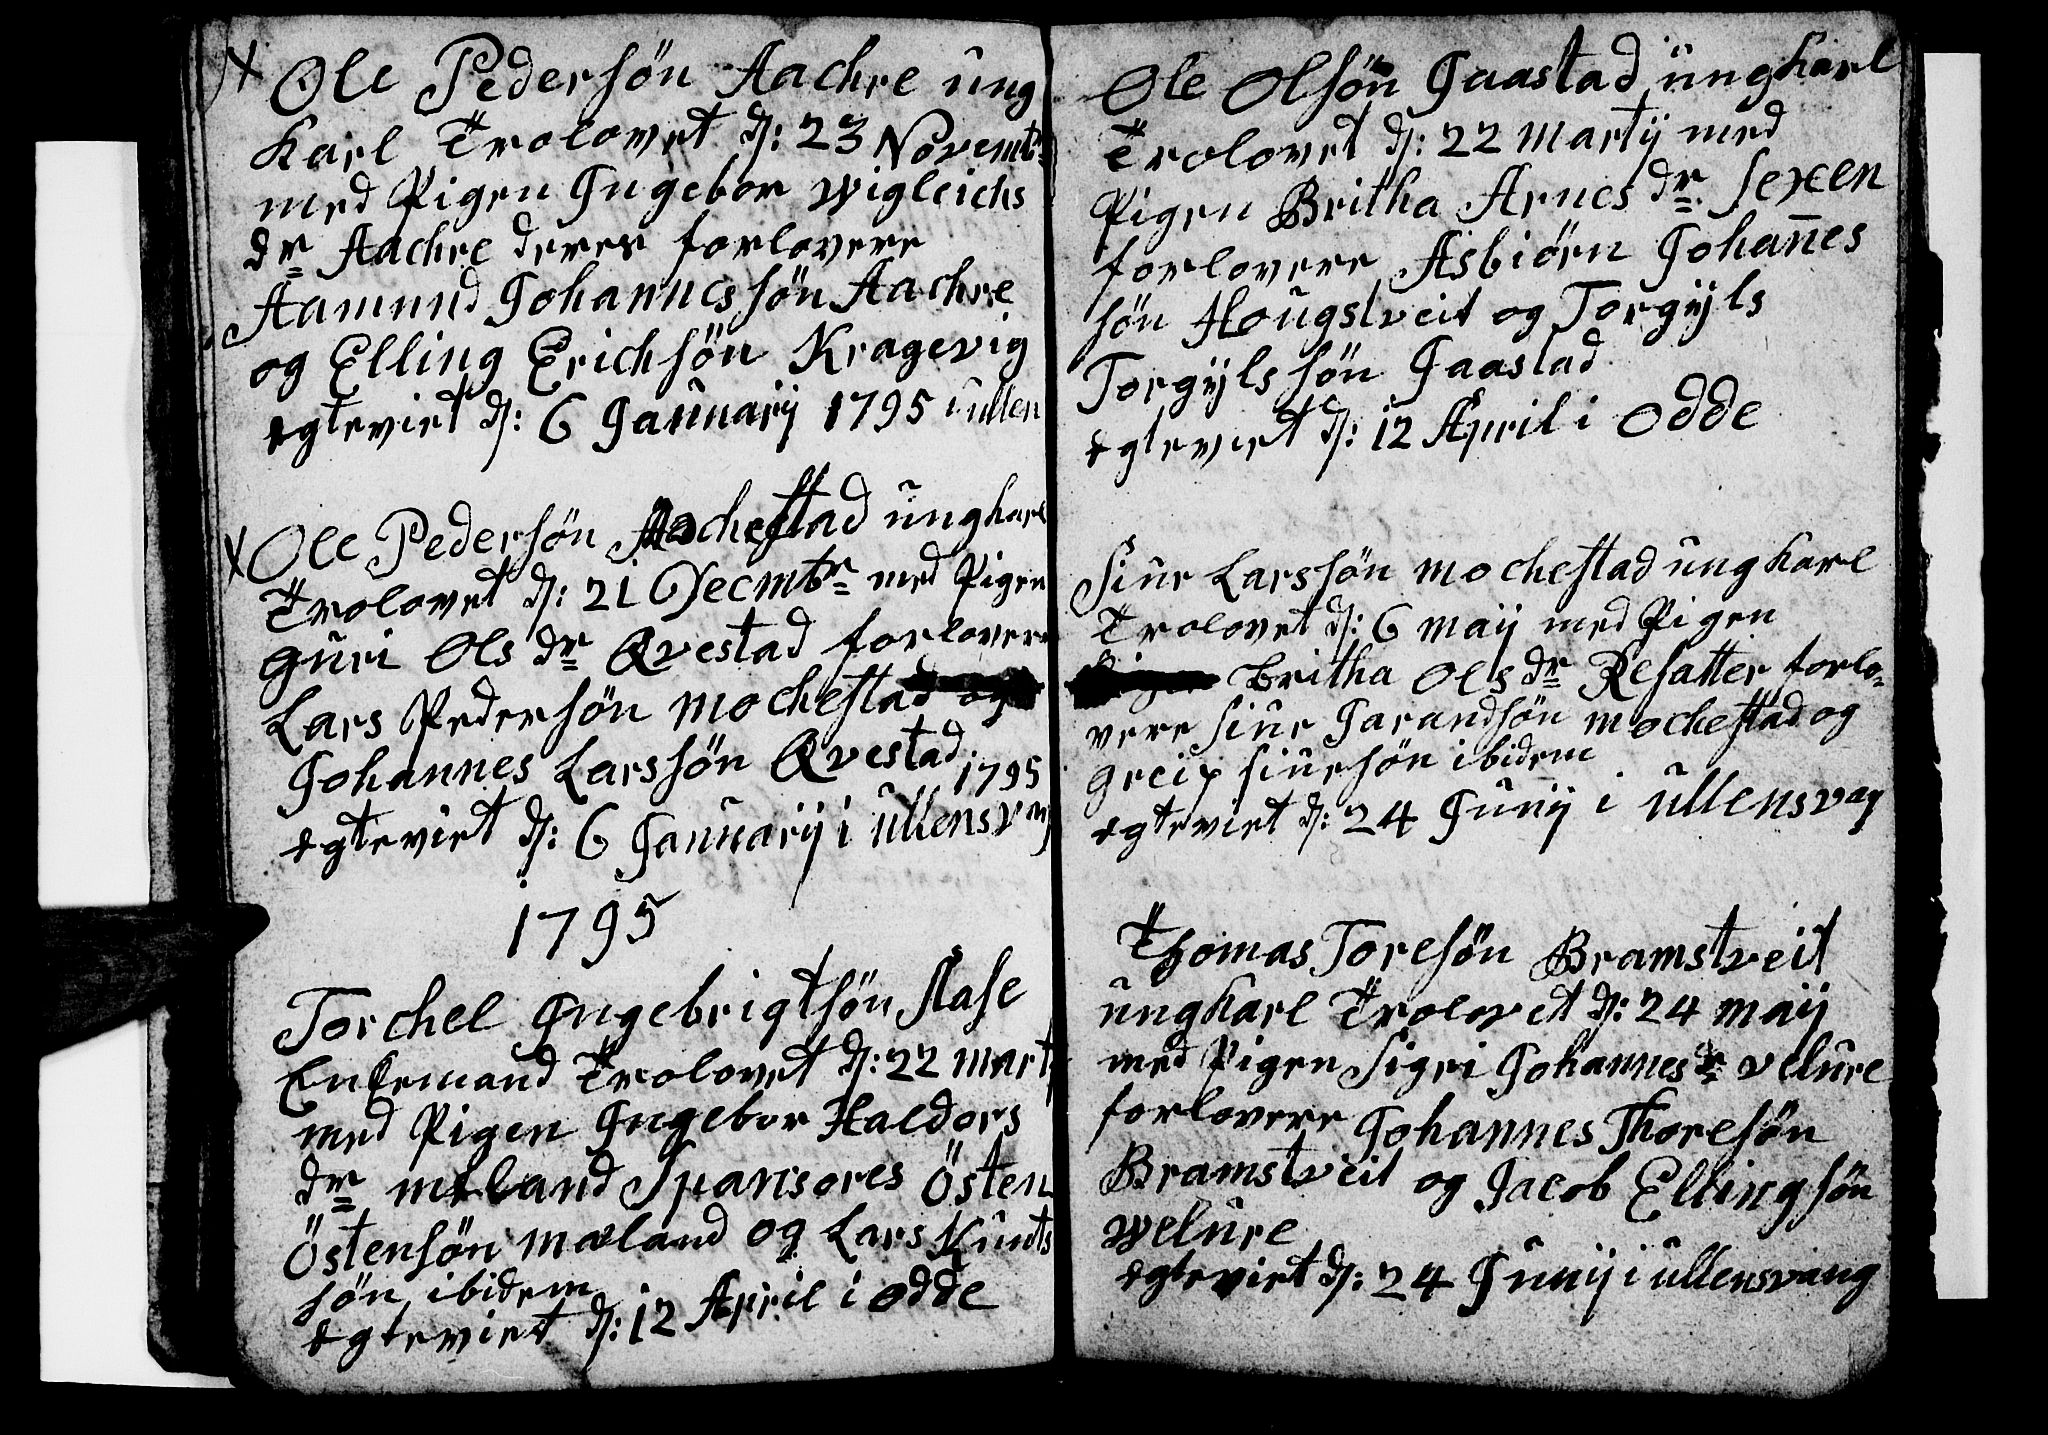 Ole Pedersøn Aachre ung
Karl Trolovet d: 23 Novemb:
med Pigen Ingebor Wigleichs
dr Aachre deres forlovere
Aamund Johannessøn Aachre
og Elling Erichsøn Kragevig
egtevirt d: 6 Januarij 1795 i ullen
Ole Pedersøn Aachestad ungkarl
Trolovet d: 21 Decmbr med Pigen
guri Ols dr Qvestad forlovere
Lars Pedersøn mochestad og
Johannes Larssøn Qvestad
1795
egtevirt d: 6 Januarij i ullensvang
1795
Torchel Ingebrigtsøn Aase
Enkemand Trolovet d: 22 marty
med Pigen Ingebor Haldors
dr mæland Spansores Östen
Östensøn mæland og Lars Knuts
søn ibidem
egtevirt d: 12 April i Odde
Ole Olsøn Jaastad ungkarl
Trolovet d: 22 martij med
Pigen Britha Arnes dr Sexen
forlovere Asbiørn Johannes
søn Hougstveit og Torgÿls
Torgÿlssøn Jaastad
egtevirt d: 12 April i Odde
Siur Larssøn mochestad ungkarl
Trolovet d: 6 maij med Pigen
Britha Ols dr Resatter forlo=
vere Siur Jarandsøn mochestad og
greip siursøn ibidem
egtevirt d: 24 Junij i ullensvang
Thomas Toresøn Bramstveit
ungkarl Trolovet d: 24 maij
med Pigen Sigri Johannes dr Velure
forlovere Johannes Thoresøn
Bramstveit og Jacob Ellingsøn
Welure
egtevirt d: 24 Junij i ullensvang